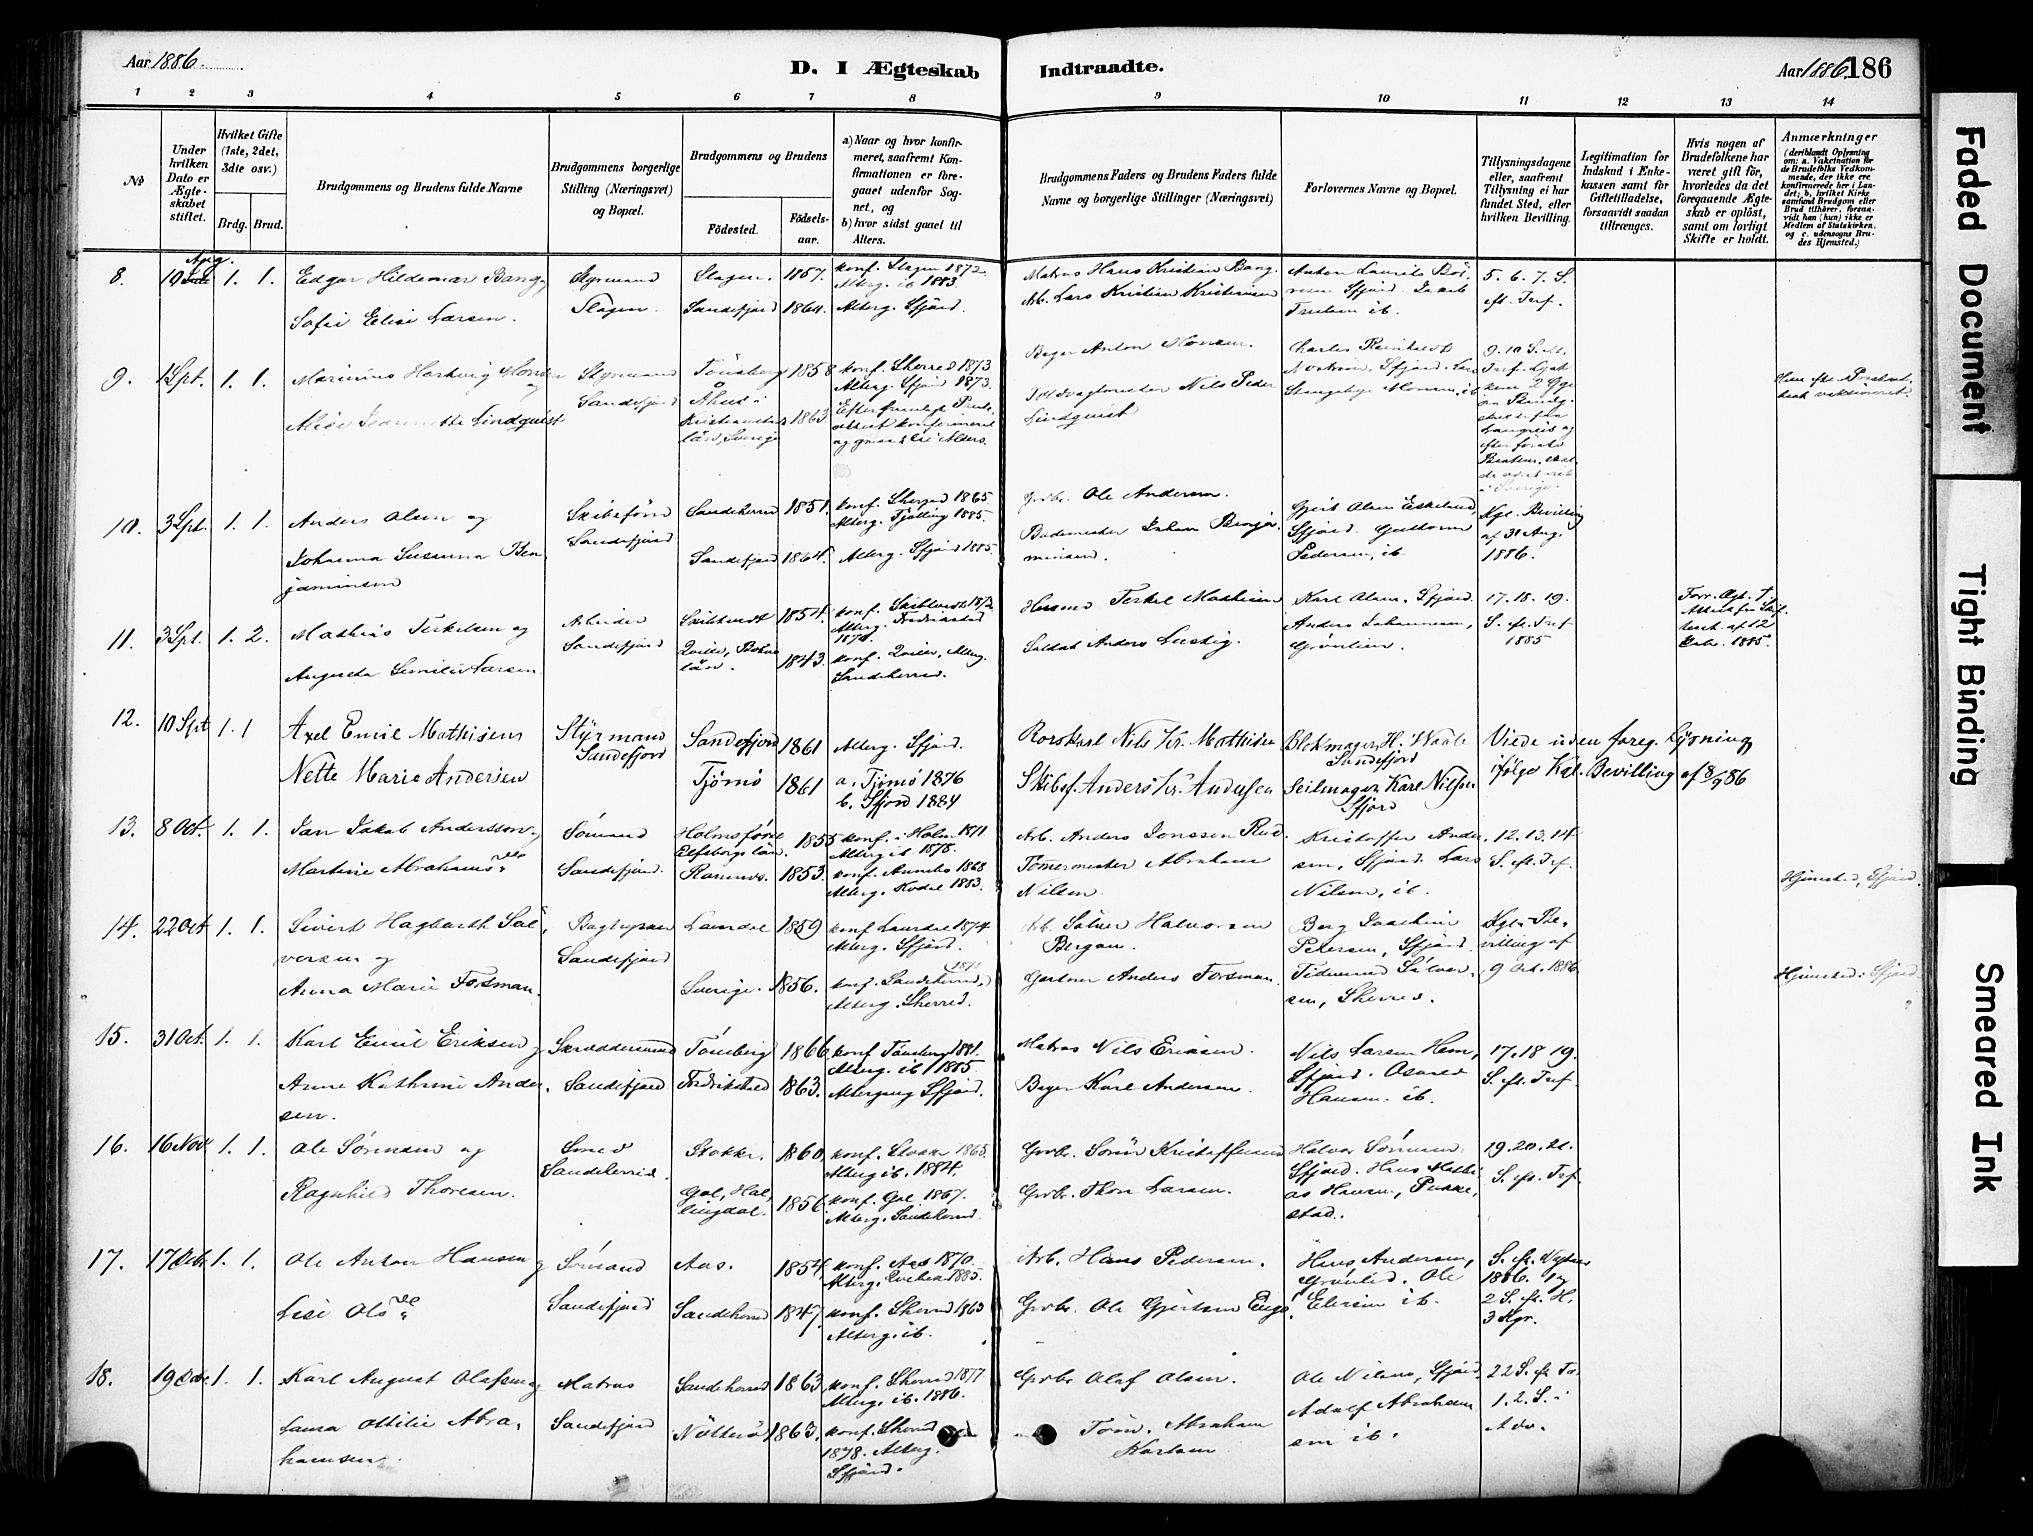 Aar 1886.
D. I Ægteskab Indtraadte.
Aar 1886. 186
1 2 3 4 5 6 7 8 9 10 11 12 13 14
№
Under hvilken Dato er Ægteskabet stiftet.
Hvilket Gifte (1ste, 2det, 3die osv.)
Brdg. Brud.
Brudgommens og Brudens fulde Navne
Brudgommens borgerlige Stilling (Næringsvei) og Bopæl.
Brudgommens og Brudens
Fødested.
Fødselsaar.
a) Naar og hvor konfirmeret, saafremt Konfirmationen er foregaaet udenfor Sognet, og
b) hvor sidst gaaet til Alters.
Brudgommens Faders og Brudens Faders fulde Navne og borgerlige Stillinger (Næringsvei)
Forlovernes Navne og Bopæl.
Tillysningsdagene eller, saafremt Tillysning ei har fundet Sted, efter hvilken Bevilling.
Legitimation for Indskud i Enkekassen samt for Giftetilladelse, forsaavidt saadan tiltrænges.
Hvis nogen af Brudefolkene har været gift før, hvorledes da det foregaaende Ægteskab er opløst, samt om lovligt Skifte er holdt.
Anmærkninger
(deriblandt Oplysning om: a. Vakcination for de Brudefolks Vedkommende, der ikke ere konfirmerede her i Landet; b. hvilket Kirkesamfund Brudgom eller Brud tilhører, forsaavidt han (hun) ikke er Medlem af Statskirken. og c. udensogns Brudes Hjemsted.)
8. 19 Aug. 1. 1. Edgar Hildemar Bang og
Sofie Elise Larsen.
Styrmand
Slagen.
Slagen. 1857.
Sandefjord 1864.
konf. Slagen 1872.
Alterg. ib 1883.
Alterg. Sfjord.
Matros Hans Kristian Bang.
Arb. Lars Kristian Kristensen
Anton Laurits
Sfjord.
ib.
5. 6. 7. S.
eft. Tref.
9. 1 Spt. 1. 1. Marinius Hartvig Monsen og
Jeannette Lindquist
Styrmand
Sandefjord
Tönsberg 1858
Åhus i
Kristianstads
län, Sverige 1863
konf. Sherred 1873
Alterg. Sfjord 1873.
Bager Anton Monsen.
Nils Peder
Lindquist
Charles
Sfjord. Lars
Monsen, ib
9. 10 S. eft.
Tref.
i Sverige.
10. 3 Spt. 1. 1. Anders Olsen og
Johanna Susanna Ben
jaminsen
Skibsförer
Sandefjord
Sandeherred 1851.
Sandefjord 1864.
konf. Sherred 1865.
Alterg. Tjölling 1885.
Alterg. Sfjord 1885.
Grbr. Ole Andersen.
Bademester Johan Benja
minsen.
Gjert Olsen Eskelund,
Sfjord. Guttorm
Pedersen, ib.
Kgl. Bevilling
af 31 Aug.
1886.
11. 3 Spt. 1. 2. Mathias Terkelsen og
Augusta Emilie Larsen
Arbeider
Sandefjord
Skibtvedt 1854.
län. 1843.
konf. Skibtvedt 1872
Alterg. Fredrikstad
1874.
Sandeherred.
Husmd Terkel Mathisen
Soldat Anders Lustig.
Karl Olsen, Sfjord.
Anders Johannesen,
Grönlien.
17. 18. 19.
S. eft. Tref
1885
af 12
1885.
12. 10 Spt 1. 1 Axel Emil Mathisen
Nette Marie Andersen
Styrmand
Sandefjord
Sandefjord 1861
Tjømø 1861
Alterg. Sfjord.
a. Tjømø 1876
b. Sfjord 1884
Rorskarl Nils Kr. Mathisen
Skibsf. Anders Kr. Andersen
Blokmager H. Waale
Sandefjord
Seilmager Karl Nilsen
Sfjord
Viede uden foreg. Lysning
ifølge Kgl. Bevilling af 8/9 86
13. 8 Oct. 1. 1. Jan Jakob Andersson og
Martine Abrahamsdr
Sömand
Sandefjord.
Elfsborgs län. 1855
Ramnes. 1853.
konf. i Holm 1871
Alterg. ib 1878.
konf. Arnebo 1868
Alterg. Kodal 1883.
Arb. Anders Jonsson Rud.
Tömmermester Abraham
Nilsen.
Kristoffer Ander
sen, Sfjord. Lars
Nilsen, ib.
12. 13. 14
S. eft. Tref.
Hjemsted, Sfjord.
14. 22 Oct 1. 1. Sivert Hagbarth Söl
versen og
Anna Marie Forsman.
Sandefjord
Laurdal 1859
Sverige. 1856.
konf. Laurdal 1874
Alterg. Sfjord.
konf. Sandeherred, 1871
Alterg. Sherred.
Arb. Sölver Halvorsen
Bergan.
Gartner Anders Forsman.
Berg Joachim
Petersen, Sfjord.
Tidemand Sölver
sen, Sherred.
Kgl. Be
villing af
9 Oct. 1886.
Hjemsted: Sfjord.
15. 31 Oct. 1. 1. Karl Emil Eriksen og
Anne Kathrine Ander
sen.
Skræddersvend
Sandefjord
Tönsberg 1866
Fredrikstad 1863.
konf Tönsberg 1881.
Alterg. ib 1885.
Altergang Sfjord.
Matros Nils Eriksen.
Bager Karl Andersen.
Nils Larsen Hem,
Sfjord.
Hansen, ib.
17. 18 19.
S. eft. Tref
16. 16 Nov 1. 1. Ole Sörensen og
Ragnhild Thoresen.
Sandeherred.
Stokke. 1860
Gol, Hal
lingdal. 1856
konf. Stokke 1865.
Alterg ib. 1884.
konf. Gol 1867.
Alterg. Sandeherred.
Grbr. Sören Kristoffersen
Grbr. Thor Larsen.
Halvor Sörensen
Sfjord. Hans Mathi
as Hansen, Pukke
stad.
19. 20. 21.
S. eft. Tref
17. 17 Octbr. 1. 1. Ole Anton Hansen og
Lise Olsdr
Sömand
Sandefjord
Aas. 1854
Sandeherred 1847.
konf. Aas 1870.
1885.
konf. Sherred 1863
Alterg. ib.
Arb. Hans Pedersen.
Grbr. Ole Gjertsen Enge
Hans Andersen,
Grönlid. Ole
ib.
S. eft. Nytaar
1886. 1 og
2 S. eft. H.
3 Kgr.
18. 19 1. 1. Karl August Olafsen og
Laura Ottilie Abra
hamsen.
Matros
Sandefjord
Sandeherred 1863
Nötterö 1863.
konf. Sherred 1877
Alterg. ib. 1886.
konf. Sherred
1878. Alterg.
Sfjord.
Grbr. Olaf Olsen.
Töm. Abraham
Karlsen
Ole Nilsen, Sfjord.
Adolf Abraham
sen ib.
22 S. eft Tr
1. 2. S. i
Adv.
Faded Document
Tight Binding
Smeared Ink